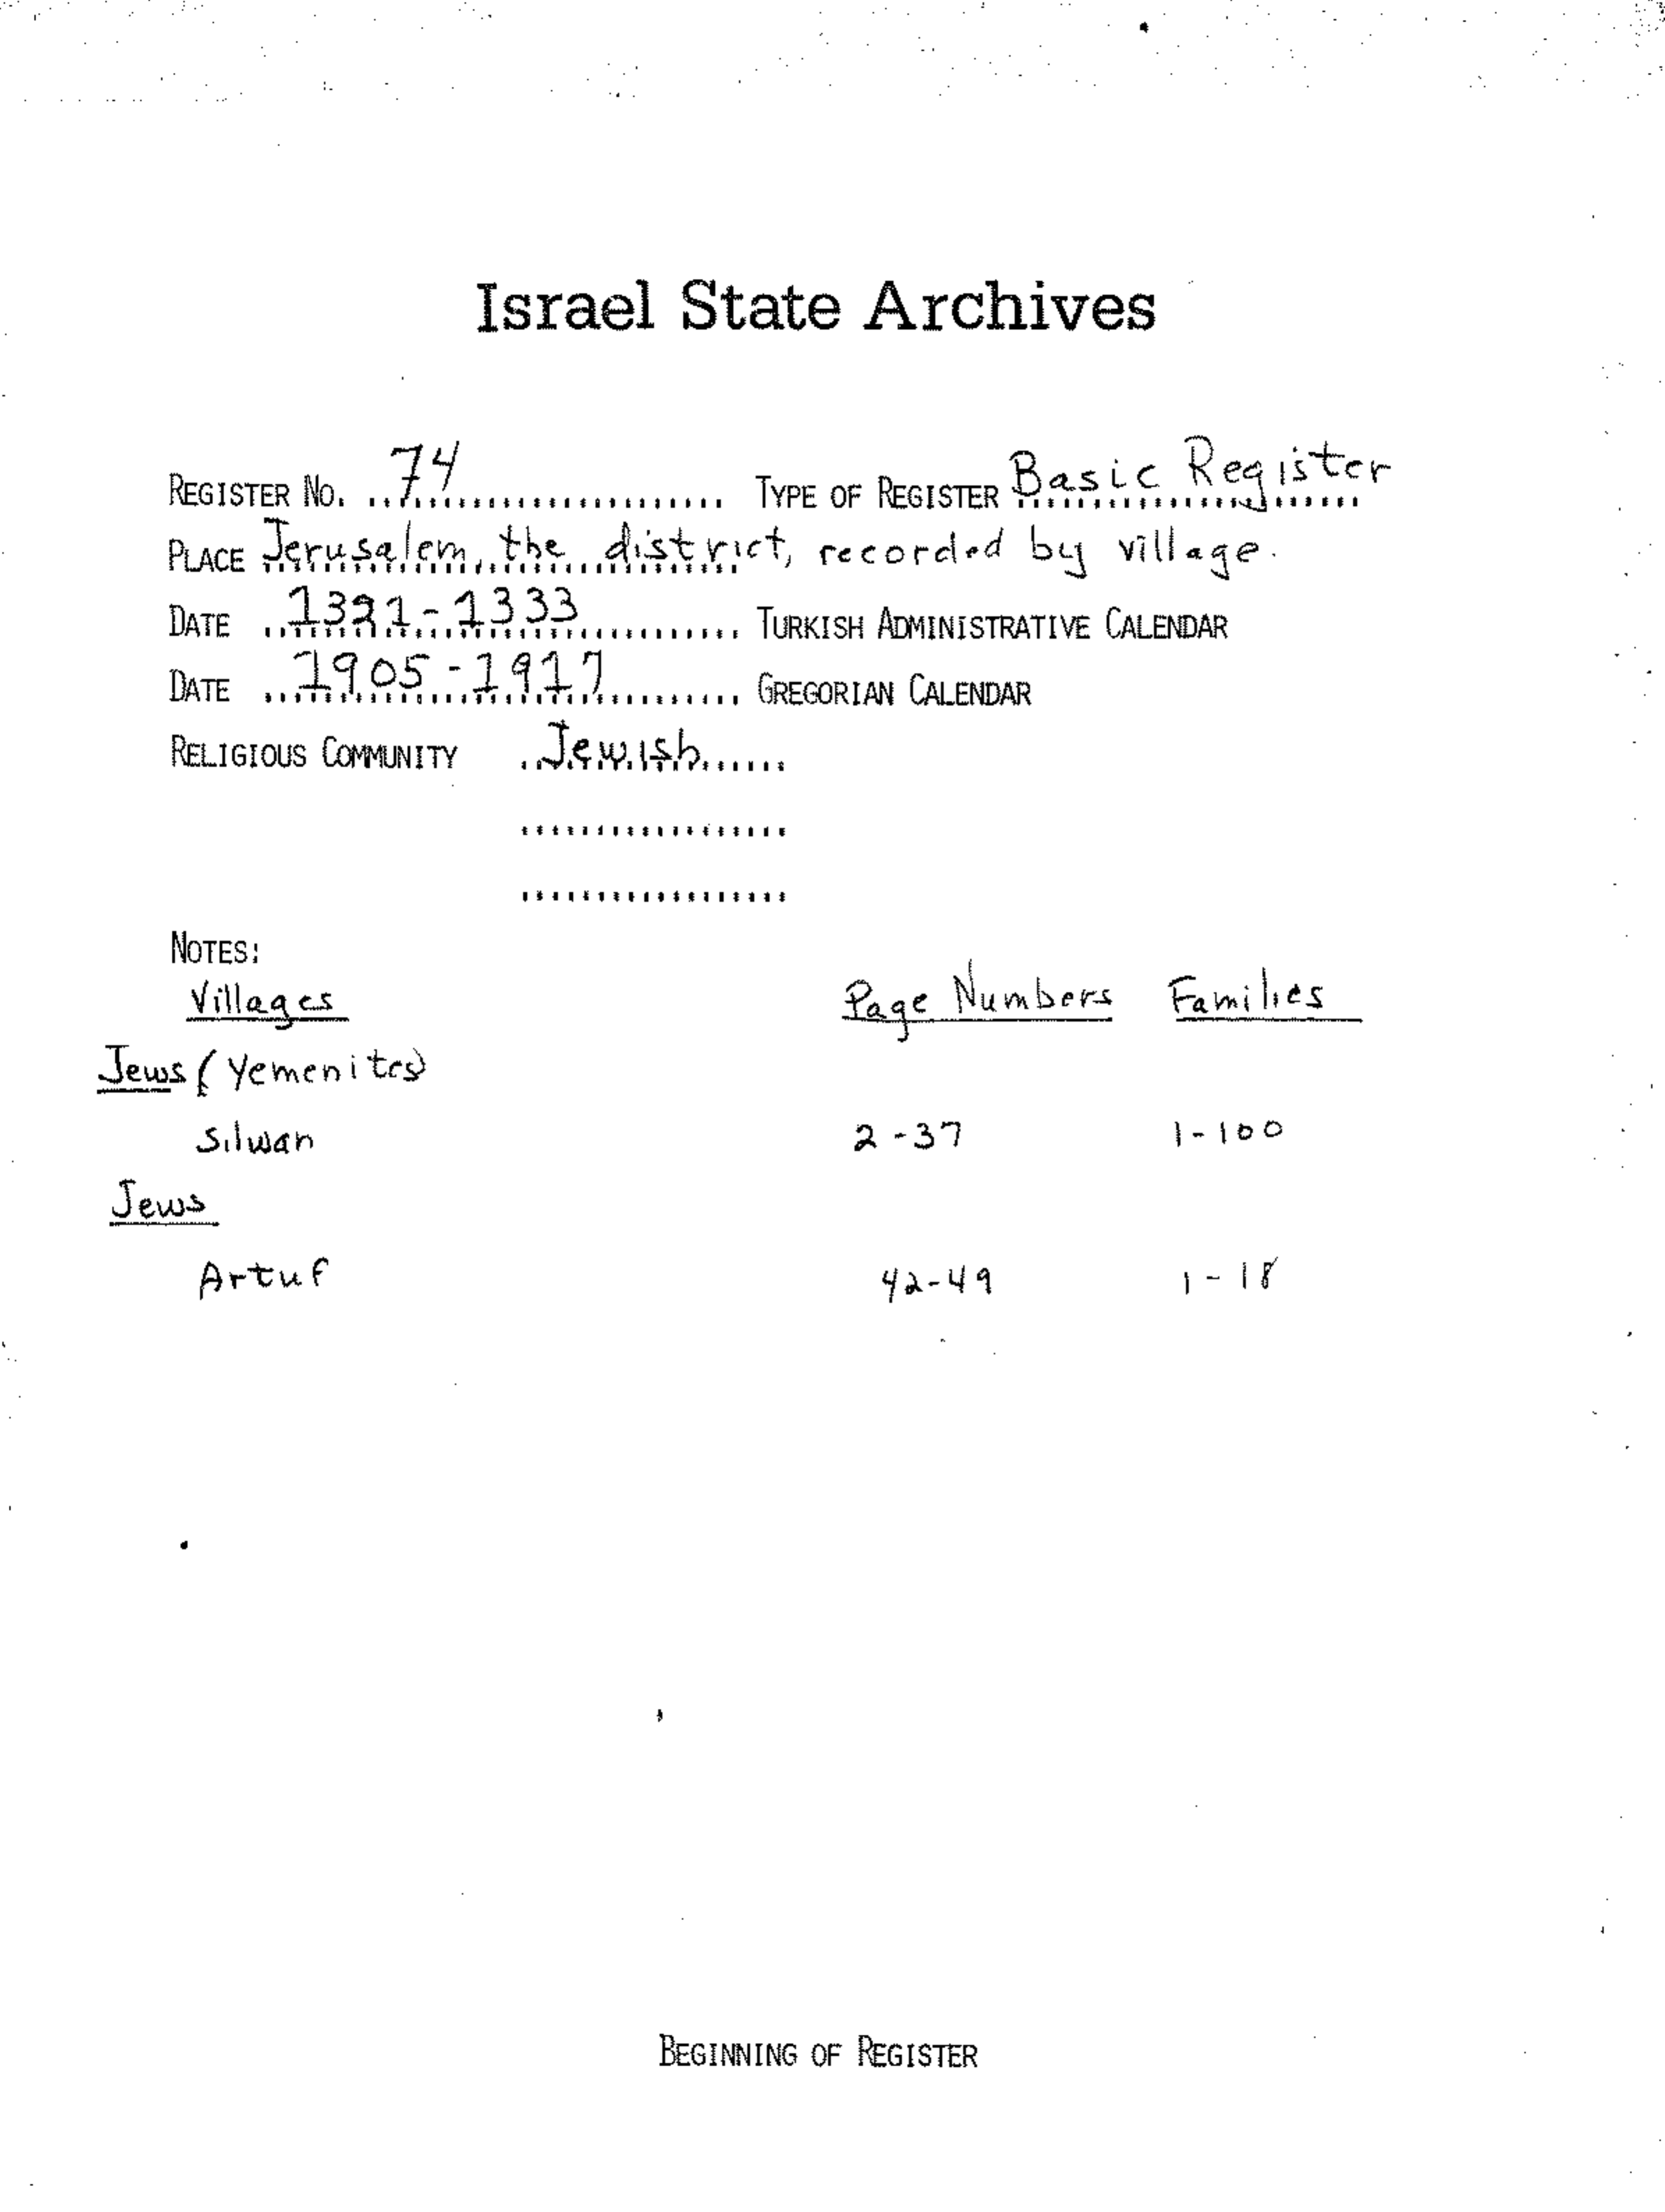 Israel State Archives
REGISTER NO. 74 TYPE OF REGISTER Basic Register
PLACE Jerusalem, the district, recorded by village.
DATE 1321-1333 TURKISH ADMINISTRATIVE CALENDAR
DATE 1905-1917 GREGORIAN CALENDAR
RELIGIOUS COMMUNITY Jewish
NOTES:
Villages Page Numbers Families
Jews (Yemenites)
Silwan 2-37 1-100
Jews
Artuf 42-49 1-18
BEGINNING OF REGISTER